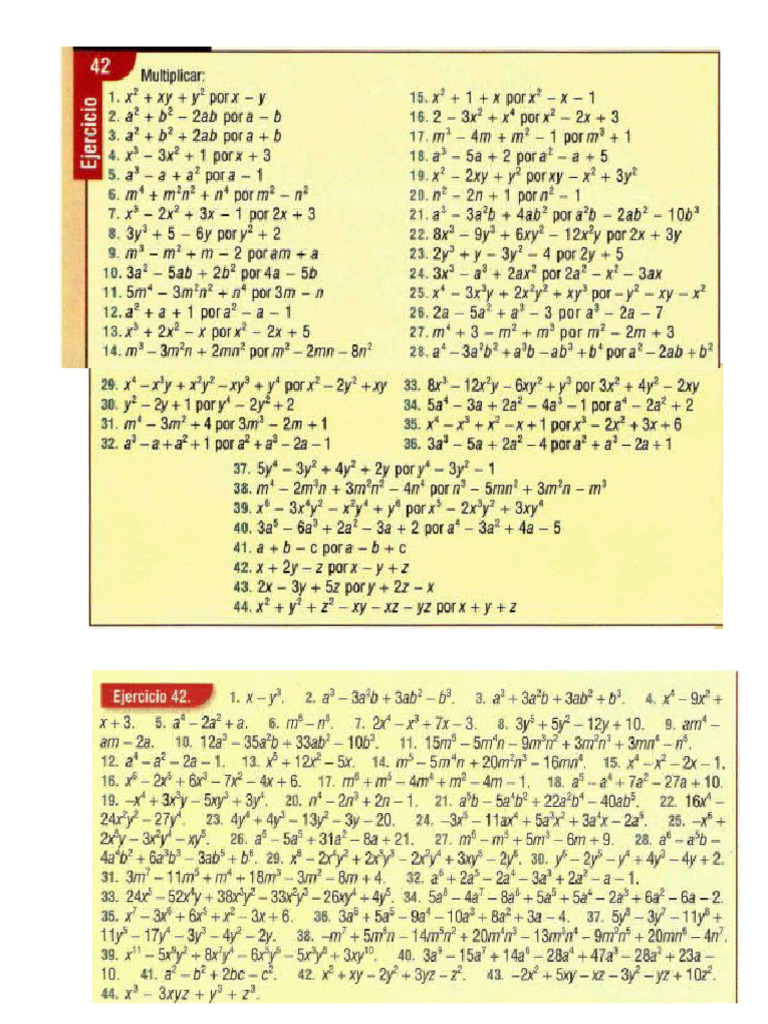 42
Ejercicio
Multiplicar:
1. x² + xy + y² por x – y
2. a² + b² – 2ab por a – b
3. a² + b² + 2ab por a + b
4. x³ – 3x² + 1 por x + 3
5. a³ – a + a² por a – 1
6. m⁴ + m²n² + n⁴ por m² – n²
7. x³ – 2x² + 3x – 1 por 2x + 3
8. 3y³ + 5 – 6y por y² + 2
9. m³ – m² + m – 2 por am + a
10. 3a² – 5ab + 2b² por 4a – 5b
11. 5m⁴ – 3m²n² + n⁴ por 3m – n
12. a² + a + 1 por a² – a – 1
13. x³ + 2x² – x por x² – 2x + 5
14. m³ – 3m²n + 2mn² por m² – 2mn – 8n²
15. x² + 1 + x por x² – x – 1
16. 2 – 3x² + x⁴ por x² – 2x + 3
17. m³ – 4m + m² – 1 por m³ + 1
18. a³ – 5a + 2 por a² – a + 5
19. x² – 2xy + y² por xy – x² + 3y²
20. n² – 2n + 1 por n² – 1
21. a³ – 3a²b + 4ab² por a²b – 2ab² – 10b³
22. 8x³ – 9y³ + 6xy² – 12x²y por 2x + 3y
23. 2y³ + y – 3y² – 4 por 2y + 5
24. 3x³ – a³ + 2ax² por 2a² – x² – 3ax
25. x⁴ – 3x³y + 2x²y² + xy³ por – y² – xy – x²
26. 2a – 5a² + a³ – 3 por a³ – 2a – 7
27. m⁴ + 3 – m² + m³ por m² – 2m + 3
28. a⁴ – 3a²b² + a³b – ab³ + b⁴ por a² – 2ab + b²
29. x⁴ – x³y + x²y² – xy³ + y⁴ por x² – 2y² + xy
30. y² – 2y + 1 por y⁴ – 2y² + 2
31. m⁴ – 3m² + 4 por 3m³ – 2m + 1
32. a³ – a + a² + 1 por a² + a³ – 2a – 1
33. 8x³ – 12x²y – 6xy² + y³ por 3x² + 4y² – 2xy
34. 5a⁴ – 3a + 2a² – 4a³ – 1 por a⁴ – 2a² + 2
35. x⁴ – x³ + x² – x + 1 por x³ – 2x² + 3x + 6
36. 3a³ – 5a + 2a² – 4 por a² + a³ – 2a + 1
37. 5y⁴ – 3y² + 4y² + 2y por y⁴ – 3y² – 1
38. m⁴ – 2m³n + 3m²n² – 4n⁴ por n³ – 5mn² + 3m²n – m³
39. x⁶ – 3x⁴y² – x²y⁴ + y⁶ por x⁵ – 2x³y² + 3xy⁴
40. 3a⁵ – 6a³ + 2a² – 3a + 2 por a⁴ – 3a² + 4a – 5
41. a + b – c por a – b + c
42. x + 2y – z por x – y + z
43. 2x – 3y + 5z por y + 2z – x
44. x² + y² + z² – xy – xz – yz por x + y + z
Ejercicio 42. 1. x – y³. 2. a³ – 3a³b + 3ab² – b³. 3. a³ + 3a²b + 3ab² + b³. 4. x⁴ – 9x² +
x + 3. 5. a⁴ – 2a² + a. 6. m⁶ – n⁶. 7. 2x⁴ – x³ + 7x – 3. 8. 3y⁵ + 5y² – 12y + 10. 9. am⁴ –
am – 2a. 10. 12a³ – 35a²b + 33ab² – 10b³. 11. 15m⁵ – 5m⁴n – 9m³n² + 3m²n³ + 3mn⁴ – n⁵.
12. a⁴ – a² – 2a – 1. 13. x⁵ + 12x² – 5x. 14. m⁵ – 5m⁴n + 20m²n³ – 16mn⁴. 15. x⁴ – x² – 2x – 1.
16. x⁶ – 2x⁵ + 6x³ – 7x² – 4x + 6. 17. m⁶ + m⁵ – 4m⁴ + m² – 4m – 1. 18. a⁵ – a⁴ + 7a² – 27a + 10.
19. –x⁴ + 3x³y – 5xy³ + 3y⁴. 20. n⁴ – 2n³ + 2n – 1. 21. a⁵b – 5a⁴b² + 22a²b⁴ – 40ab⁵. 22. 16x⁴ –
24x²y² – 27y⁴. 23. 4y⁴ + 4y³ – 13y² – 3y – 20. 24. –3x⁵ – 11ax⁴ + 5a³x² + 3a⁴x – 2a⁵. 25. –x⁶ +
2x⁵y – 3x²y⁴ – xy⁵. 26. a⁶ – 5a⁵ + 31a² – 8a + 21. 27. m⁶ – m⁵ + 5m³ – 6m + 9. 28. a⁶ – a⁵b –
4a⁴b² + 6a³b³ – 3ab⁵ + b⁶. 29. x⁶ – 2x⁴y² + 2x³y³ – 2x²y⁴ + 3xy⁵ – 2y⁶. 30. y⁶ – 2y⁵ – y⁴ + 4y³ – 4y + 2.
31. 3m⁷ – 11m⁵ + m⁴ + 18m³ – 3m² – 8m + 4. 32. a⁶ + 2a⁵ – 2a⁴ – 3a³ + 2a² – a – 1.
33. 24x⁵ – 52x⁴y + 38x³y² – 33x²y³ – 26xy⁴ + 4y⁵. 34. 5a⁸ – 4a⁷ – 8a⁶ + 5a⁵ + 5a⁴ – 2a³ + 6a² – 6a – 2.
35. x⁷ – 3x⁶ + 6x⁵ + x² – 3x + 6. 36. 3a⁶ + 5a⁵ – 9a⁴ – 10a³ + 8a² + 3a – 4. 37. 5y⁸ – 3y⁷ – 11y⁶ +
11y⁵ – 17y⁴ – 3y³ – 4y² – 2y. 38. –m⁷ + 5m⁶n – 14m⁵n² + 20m⁴n³ – 13m³n⁴ – 9m²n⁵ + 20mn⁶ – 4n⁷.
39. x¹¹ – 5x⁹y² + 8x⁷y⁴ – 6x⁵y⁶ – 5x³y⁸ + 3xy¹⁰. 40. 3a⁹ – 15a⁷ + 14a⁶ – 28a⁴ + 47a³ – 28a² + 23a –
10. 41. a² – b² + 2bc – c². 42. x² + xy – 2y² + 3yz – z². 43. –2x² + 5xy – xz – 3y² – yz + 10z².
44. x³ – 3xyz + y³ + z³.